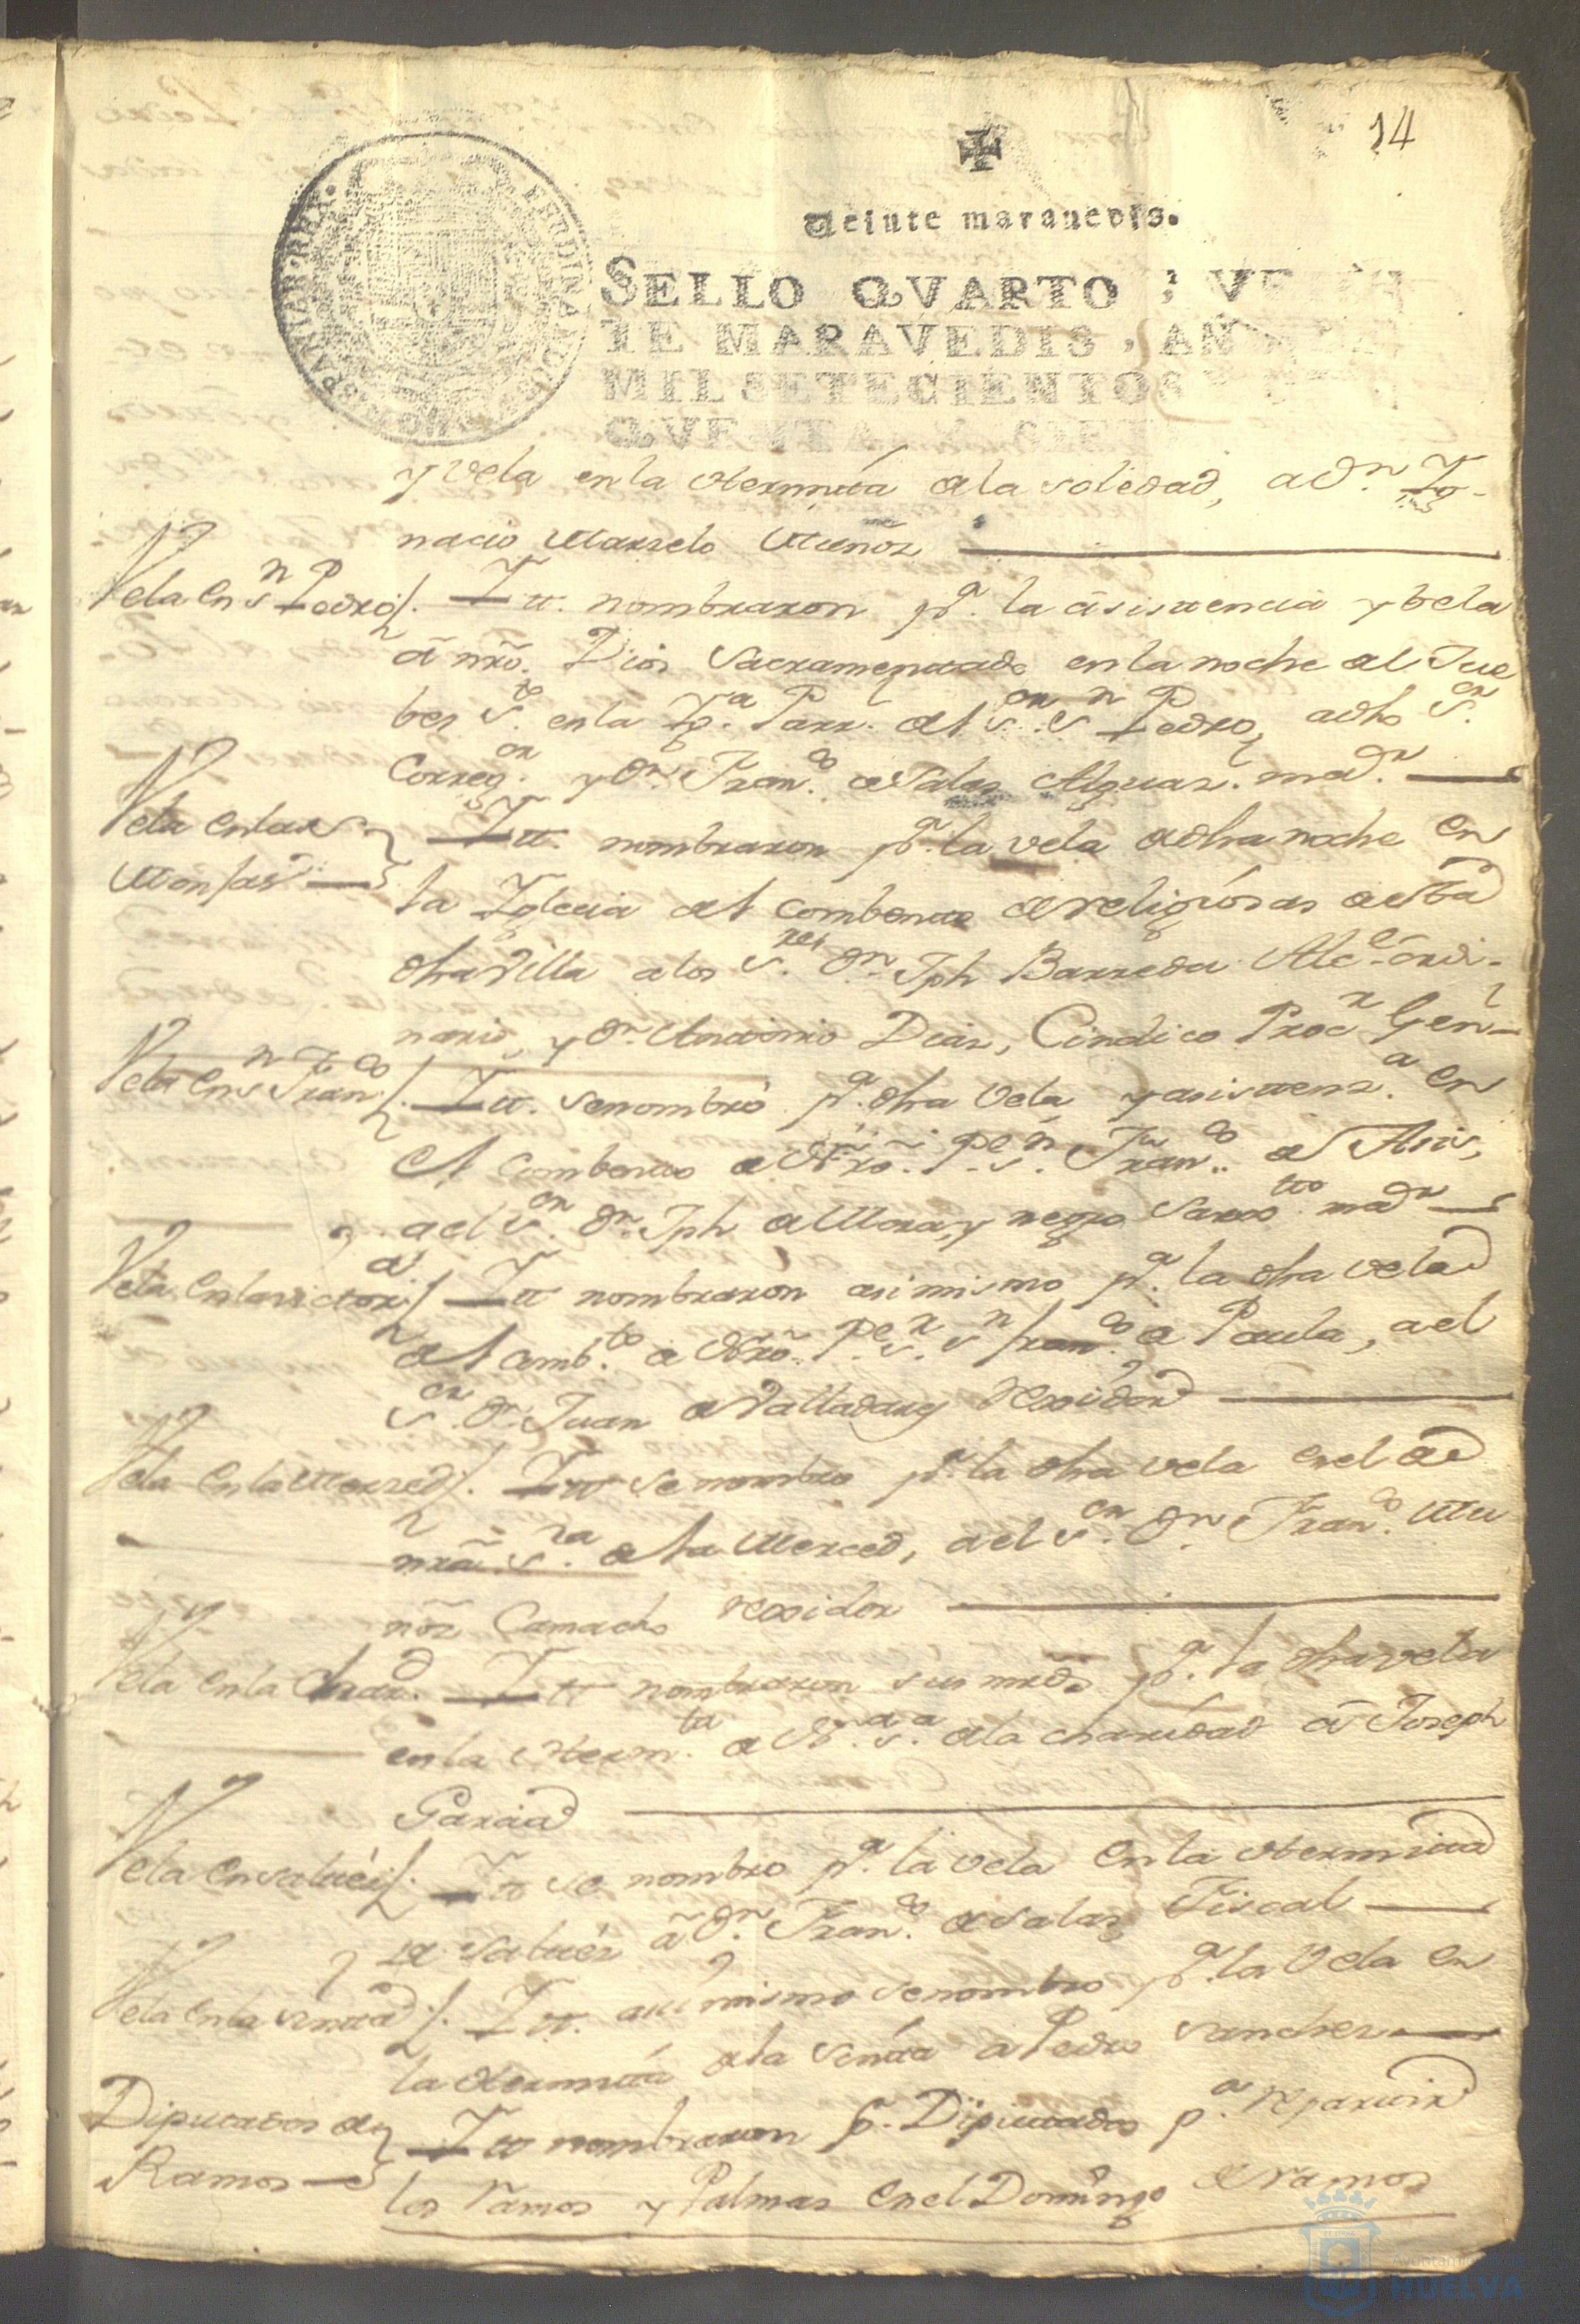 14
Veinte maravedis.
SELLO QVARTO, VE
TE MARAVEDIS, AÑ
MIL SETECIENTOS
QVENTA Y SIETE
FERDINANDUS
HISPANIAR. REX.
y vela en la Hermita de la Soledad, a Dn. Ig-
nacio Marzelo Muñoz
Vela en Sn Pedro Itt. nombraron pa. la asistencia y bela
a nro. Dios Sacramentado en la noche del Jue
bes Sto. en la Iga. Parr. del Sor. Sn Pedro, a dho Sor.
Corregor. y Dn. Franco. de Salas Alguaz. mor.
Vela en las
Monjas
Itt. nombraron pa. la vela de dha noche en
la Iglecia del combento de religiosas de esta
dha Villa a los Sres. Dn. Jph Barreda Alce. ordi-
nario, y Dn. Antonio Dias, Cindico Procr Genl
Vela en Sn Franco Itt. se nombró pa. dha Vela y asistenza. en
el combento de Nro. Pe. Sn. Franco. de Asis,
a el Sor. Dn. Jph de Mora, y negro Sarxto. mor
Vela en la victoria Itt nombraron asimismo pa. la dha vela
del combto. de Nro. Pe. Sr. Sn franco. de Paula, a el
Sor. Dn. Juan de Valladares Rexidor
Vela en la Merced Itt se nombro pa. la dha vela en el de
nra. Sra. de la Merced, a el Sor. Dn. Franco. Mu
ñoz Camacho Rexidor
Vela en la Chard. Itt nombraron sus mrds. pa. la dha vela
en la Hermta. de Na. Sa. de la charidad a Joseph
Garcia
Vela en saluds Itt se nombro pa. la vela en la Hermita
de Saluds a Dn. Franco. de Salas, Fiscal
Vela en la Sinta Itt. asimismo se nombro pa. la Vela en
la Hermita de la Sinta a Pedro Sanches
Diputados de
Ramos
Itt nombraron pr. Dipiutados pa. repartir
los ramos y Palmas en el Domingo de ramos
Ayuntamiento
HUELVA